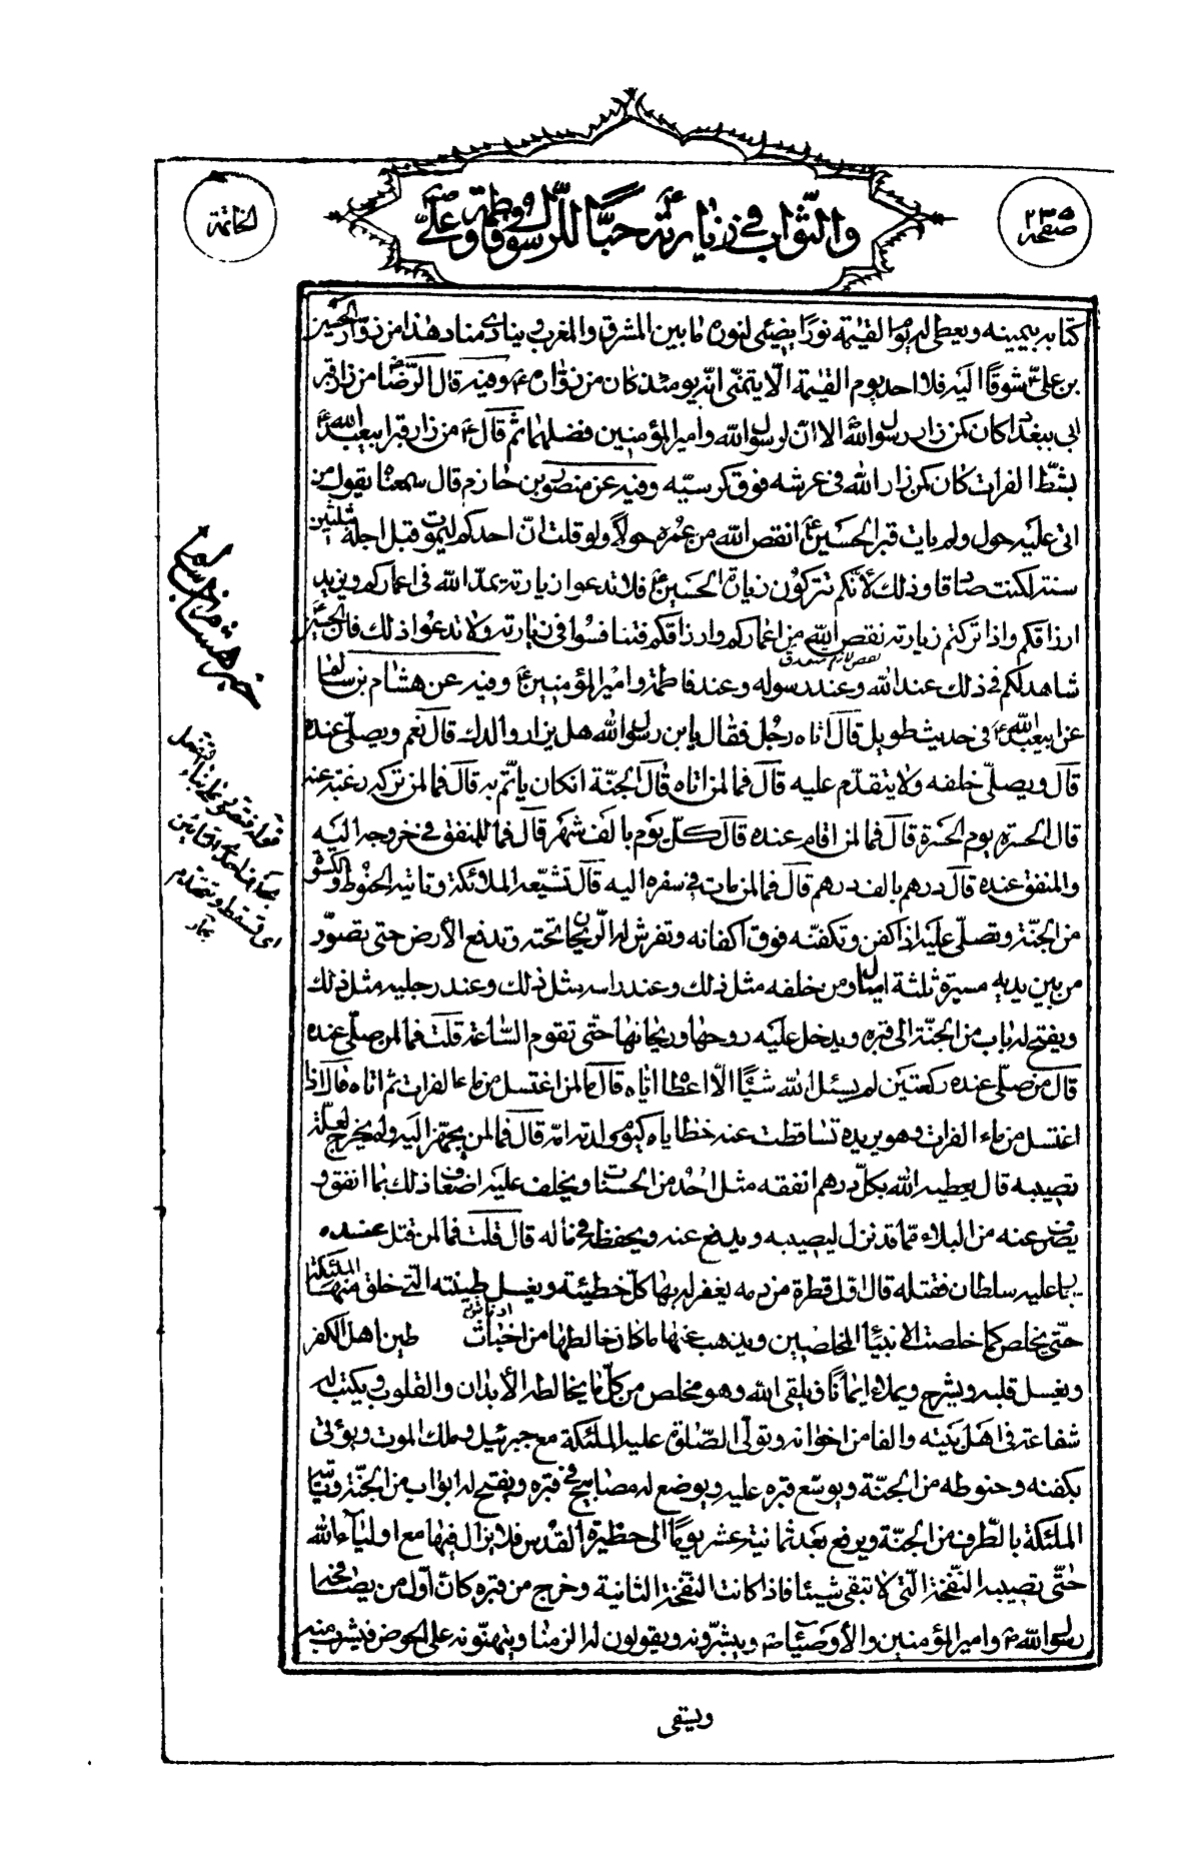 صفحه ٢٣٥
والثّواب في زيارته حبًّا للرّسول وفاطمة وعليّ
الخاتمة
كتابه بيمينه ويعطى له يوم القيٰمة نورًا يضيئ لنوره ما بين المشرق والمغرب وينادي مناد هٰذا من زوّار الحسين
بن عليّ شوقًا اليه فلا احد يوم القيٰمة الّا يتمنّى انّه يومئذ كان من زوّاره وفيه قال الرّضا من زار قبر
ابي ببغداد كان كمن زار رسول الله الا انّ لرسول الله وامير المؤمنين فضلهما ثم قال من زار قبر ابيعبد الله
بشطّ الفرات كان كمن زار الله في عرشه فوق كرسيّه وفيه عن منصور بن حازم قال سمعناه يقول من
اتى عليه حول ولم يات قبر الحسين انقص الله من عمره حولاً ولو قلت انّ احدكم ليموت قبل اجله بثلثين
سنة لكنت صادقا وذلك لأنّكم تتركون زيارة الحسين فلا تدعوا زيارته يمدّ الله في اعماركم ويزيد
ارزاقكم واذا تركتم زيارته نقص الله من اعماركم وارزاقكم فتنافسوا في زيارته ولا تدعوا ذلك فانّ الحسين
شاهد لكم في ذلك عند الله وعند رسوله وعند فاطمة وامير المؤمنين وفيه عن هشام بن سالم
عن ابيعبد الله في حديث طويل قال اتاه رجل فقال يابن رسول الله هل يزار والدك قال نعم ويصلّى عنده
قال ويصلّى خلفه ولا يتقدّم عليه قال فما لمن اتاه قال الجنّة انكان ياتمّ به قال فما لمن تركه رغبة عنه
قال الحسرة يوم الحسرة قال فما لمن اقام عنده قال كلّ يوم بالف شهر قال فما للمنفق في خروجه اليه
والمنفق عنده قال درهم بالف درهم قال فما لمن مات في سفره اليه قال تشيّعه الملائكة وتاتيه الحنوط والكسوة
من الجنّة وتصلّى عليه اذ اكفن وتكفّنه فوق اكفانه وتفرش له الرّيحان تحته وتدفع الأرض حتى تصوّر
من بين يديه مسيرة ثلثة اميال ومن خلفه مثل ذلك وعند راسه مثل ذلك وعند رجليه مثل ذلك
ويفتح له باب من الجنّة الى قبره ويدخل عليه روحها وريحانها حتّى تقوم السّاعة قلت فما لمن صلّى عنده
قال من صلّى عنده ركعتين لم يسئل الله شيئًا الّا اعطاه ايّاه قال فما لمن اغتسل من ماء الفرات ثم اتاه قال اذا
اغتسل من ماء الفرات وهو يريده تساقطت عنه خطاياه كيوم ولدته امّه قال فما لمن يجهّز اليه ولم يخرج لعلّة
تصيبه قال يعطيه الله بكلّ درهم انفقه مثل احُد من الحسنات ويخلف عليه اضعاف ذلك بما انفق و
يصرف عنه من البلاء ممّا قد نزل ليصيبه ويدفع عنه ويحفظ في ماله قال قلت فما لمن قتل عنده
جار عليه سلطان فقتله قال اوّل قطرة من دمه يغفر له بها كلّ خطيئة ويغسل طينته الّتي خلق منها الملئكة
حتّى يخلص كما خلصت الانبياء المخلصين ويذهب عنها ما كان خالطها من اخباث طين اهل الكفر
ويغسل قلبه ويشرح ويملاء ايمانًا فيلقى الله وهو مخلص من كلّ ما يخالطه الأبدان والقلوب ويكتب له
شفاعة في اهل بيته والفا من اخوانه وتولّى الصّلوة عليه الملئكة مع جبرئيل وملك الموت ويؤتى
بكفنه وحنوطه من الجنّة ويوسّع قبره عليه ويوضع له مصابيح في قبره ويفتح له ابواب من الجنّة وتاتيه
الملئكة بالطّرف من الجنّة ويرفع بعد ثمانية عشر يومًا الى حظيرة القدس فلا يزال فيها مع اولياء الله
حتّى تصيبه النّفخة الّتي لا تبقى شيئا فاذا كانت النّفخة الثانية وخرج من قبره كان اوّل من يصافحه
رسول الله وامير المؤمنين والأوصياء ويبشّرونه ويقولون له الزمنا ويقيمونه على الحوض فيشرب منه
ويسقى
خبر هشام بن سالم